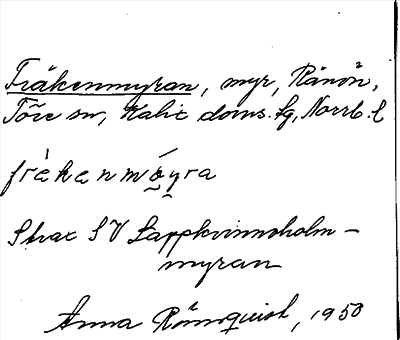 Fräkenmyran, myr, Rånön,
Töre sn, Kalix doms. lg, Norrb. l
frèkenmóyra
Strax SV Lappkvinnoholm-
myran
Anna Rönnquist, 1950